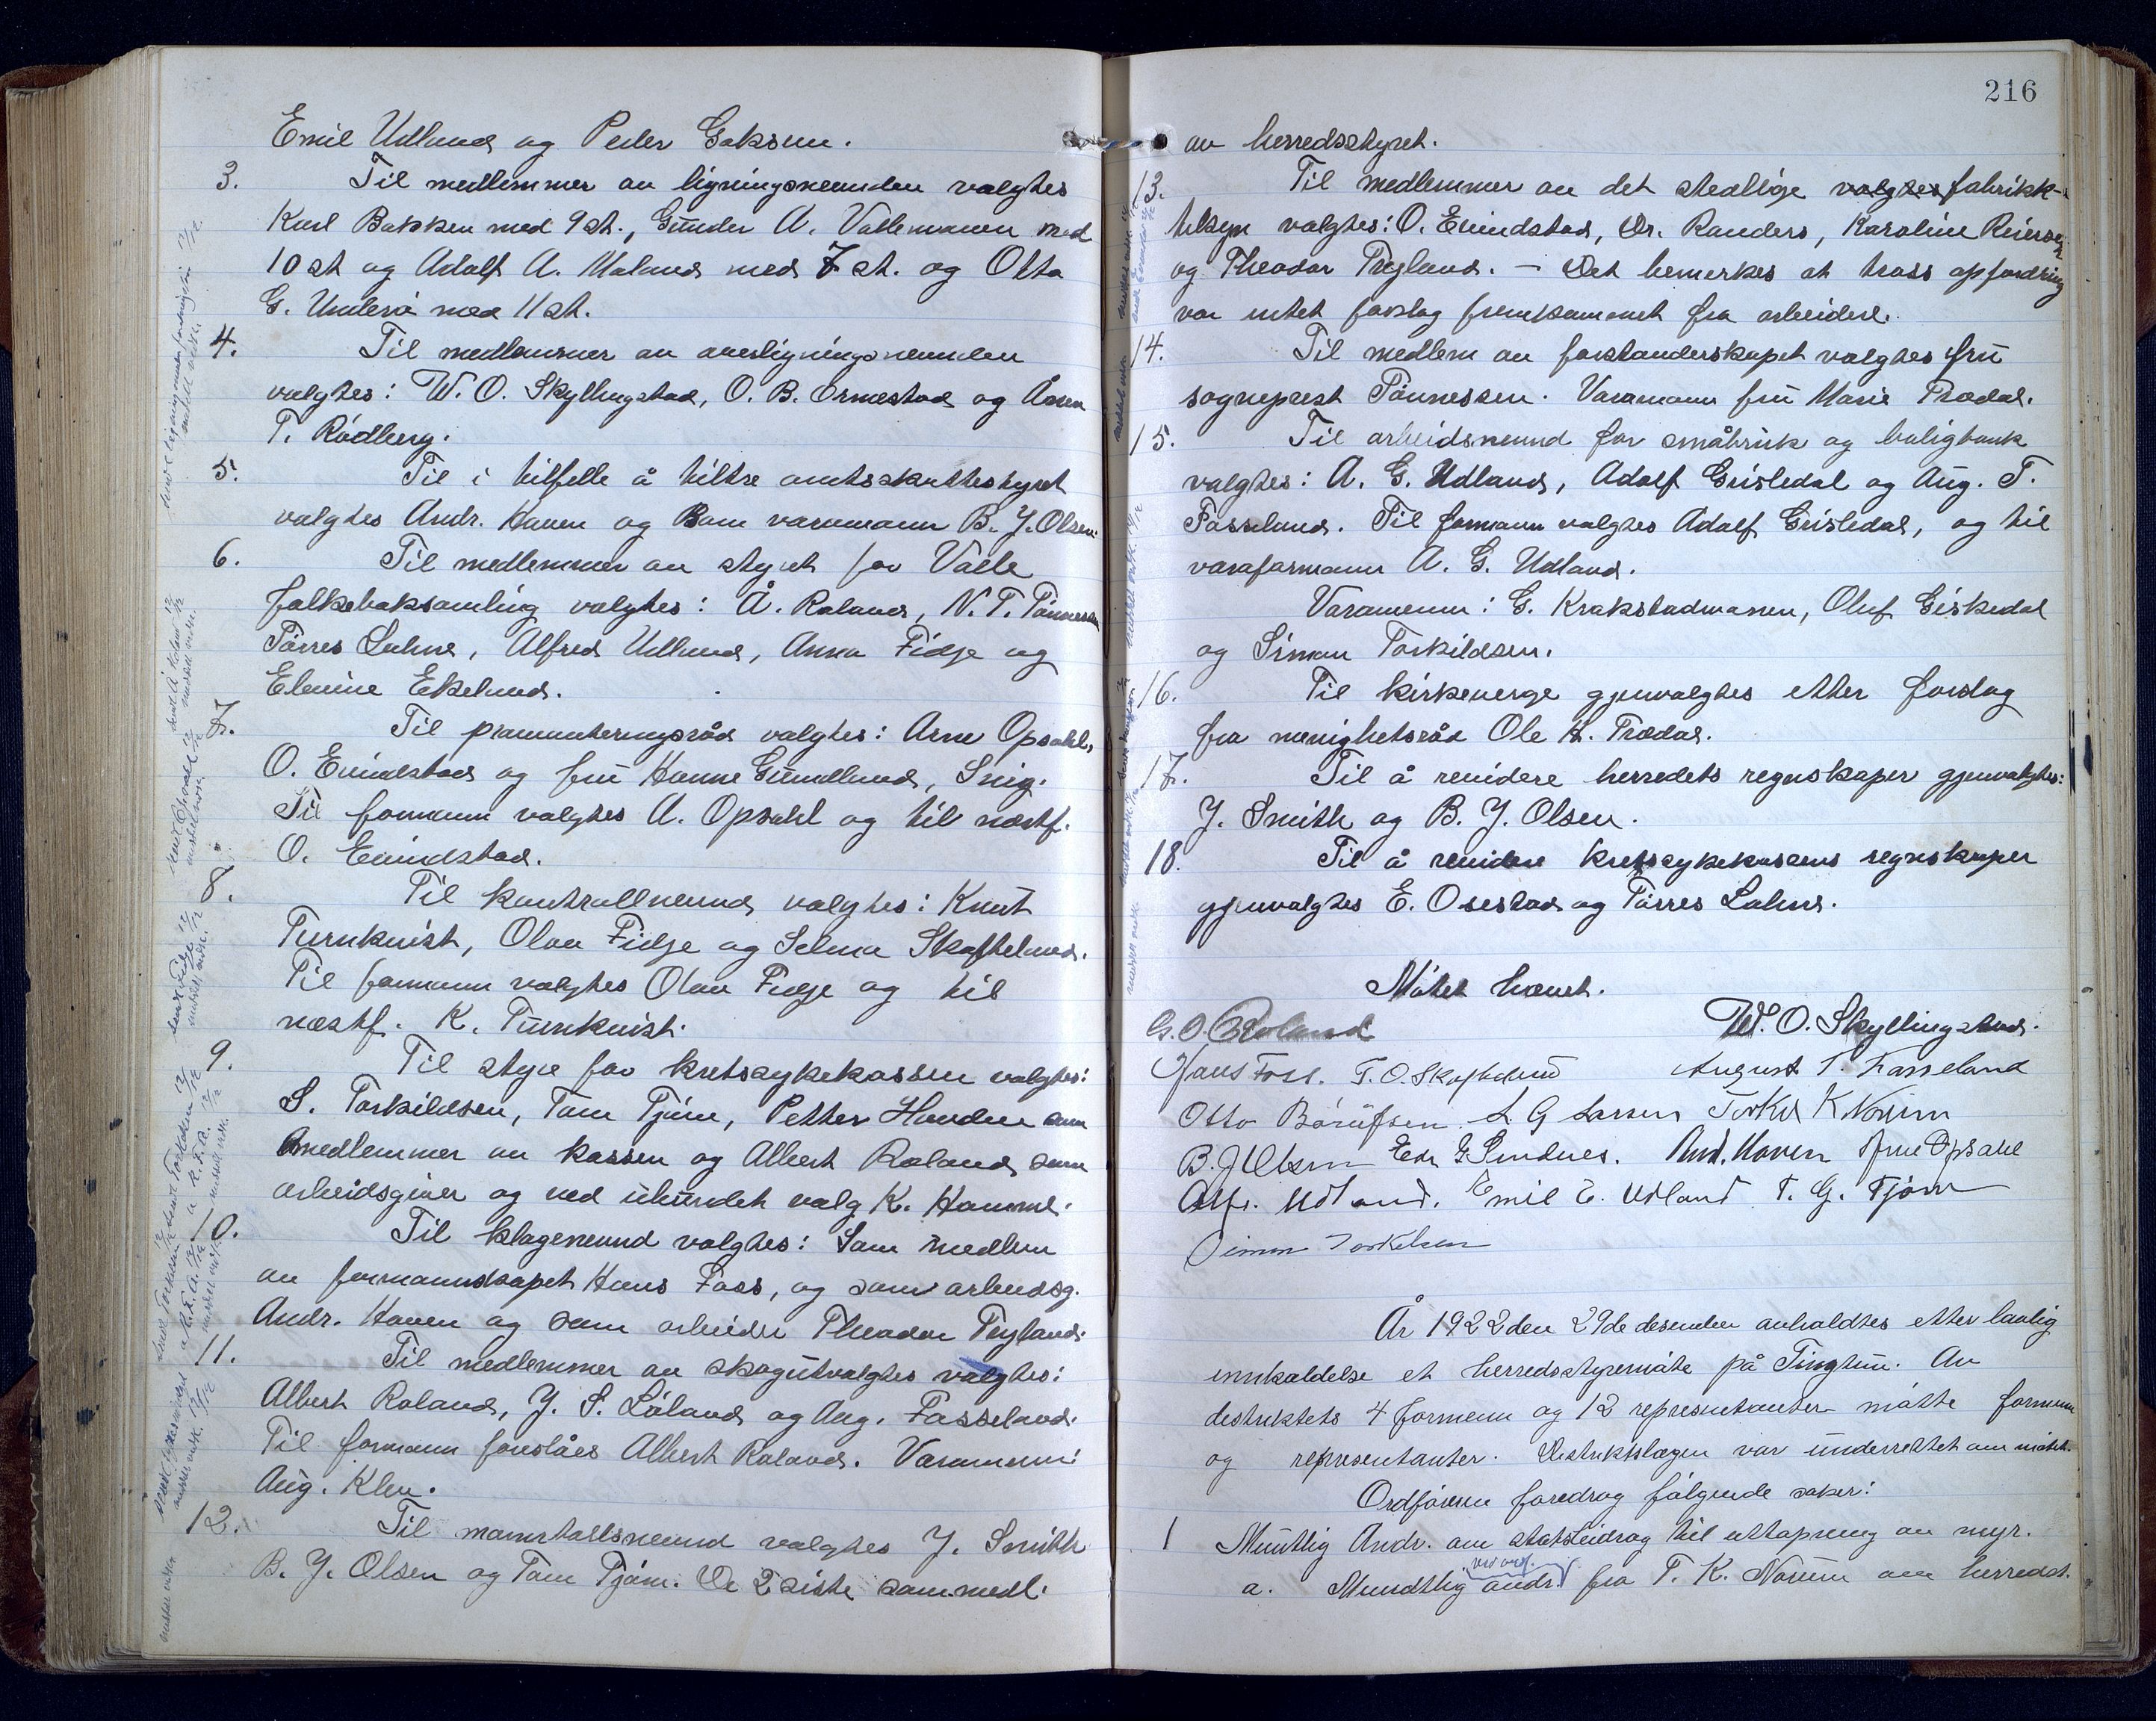 Emil Udland og Peder Goksum.
3. Til medlemmer av ligningsnevnden valgtes
Karl Bakken med 9 st., Gunder A. Vallemanen med
10 st og Adolf A. Udland med 7 st. og Otto
G. Underå med 11 st.
4. Til medlemmer av overligningsnevnden
valgtes: W. O. Skyllingstad, O. B. Ormestad og Ånen
T. Rødberg.
5. Til i tilfelle å tiltre amtsskattestyret
valgtes Andr. Haven og som varamann B. J. Olsen.
6. Til medlemmer av styret for Valle
folkeboksamling valgtes: Å. Roland, N. T. Tønnessen
Tørres Lohne, Alfred Udland, Anna Fidje og
Elenine Ekelund.
7. Til pramnteringsråd valgtes: Arne Opsahl,
O. Evindstad og fru Hanne Gundlund, Snig.
Til formann valgtes A. Opsahl og til næstf.
O. Evindstad.
8. Til kontrollnevnd valgtes: Knut
Turnkvist, Olav Fidje og Selma Skoftelund.
Til formann valgtes Olav Fidje og til
næstf. K. Turnkvist.
9. Til styre for kretssykekassen valgtes:
S. Torkildsen, Tom Tjøm, Petter Handen som
medlemmer av kassen og Albert Roland som
arbeidsgiver og ved ubundet valg K. Homme.
10. Til klagenevnd valgtes: Som medlem
av formannskapet Hans Foss, og som arbeidsg.
Andr. Haven og som arbeider Theodor Tregland.
11. Til medlemmer av skogutvalgtes valgtes:
Albert Roland, J. S. Løland og Aug. Fasseland.
Til formann foreslåes Albert Roland. Varamenn:
Aug. Klev.
12. Til manntallsnevnd valgtes J. Smith
B. J. Olsen og Tom Tjøm. De 2 siste som medl.
216
av herredsstyret.
13. Til medlemmer av det stedlige valgtes fabrikk-
tilsyn valgtes: O. Evindstad, Dr. Randers, Karoline Reiersen
og Theodor Tregland. – Det bemerkes at tross opfordring
var intet forslag fremkommet fra arbeidere.
14. Til medlem av forstanderskapet valgtes fru
sogneprest Tønnessen. Varamann fru Marie Trædal.
15. Til arbeidsnevnd for småbruk og boligbank
valgtes: A. G. Udland, Adolf Grisledal og Aug. T.
Fasseland. Til formann valgtes Adolf Grisledal, og til
varaformann A. G. Udland.
Varamenn: G. Krakstadmanen, Oluf Giskedal
og Simon Torkildsen.
16. Til kirkeverge gjenvalgtes etter forslag
fra menighetsråd Ole K. Trædal.
17. Til å revidere herredets regnskaper gjenvalgtes:
J. Smith og B. J. Olsen.
18. Til å revidere kretssykekassens regnskaper
gjenvalgtes E. Osestad og Tørres Lohne.
Møtet hævet.
G. O. Roland W. O. Skyllingstad.
Hans Foss. T. O. Skoftelund August T. Fasseland
Otto Børufsen L G Larsen Torkel K Noium
B. J Olsen Edv G. Lindnes. And. Haven Arne Opsahl
Alfr. Udland. Emil E. Udland T. G. Tjøm
Simon Torkelsen
År 1922 den 29de desember avholdtes etter lovlig
innkaldelse et herredsstyremøte på Tingtun. Av
distriktets 4 formenn og 12 representanter møtte formenn
og representanter. Distriktslægen var underrettet om møtet.
Ordføreren foredrog følgende saker:
1 Muntlig Andr. om statsbidrag til uttapning av myr.
a. Mundtlig andr. fra T. K. Noium om herredst.